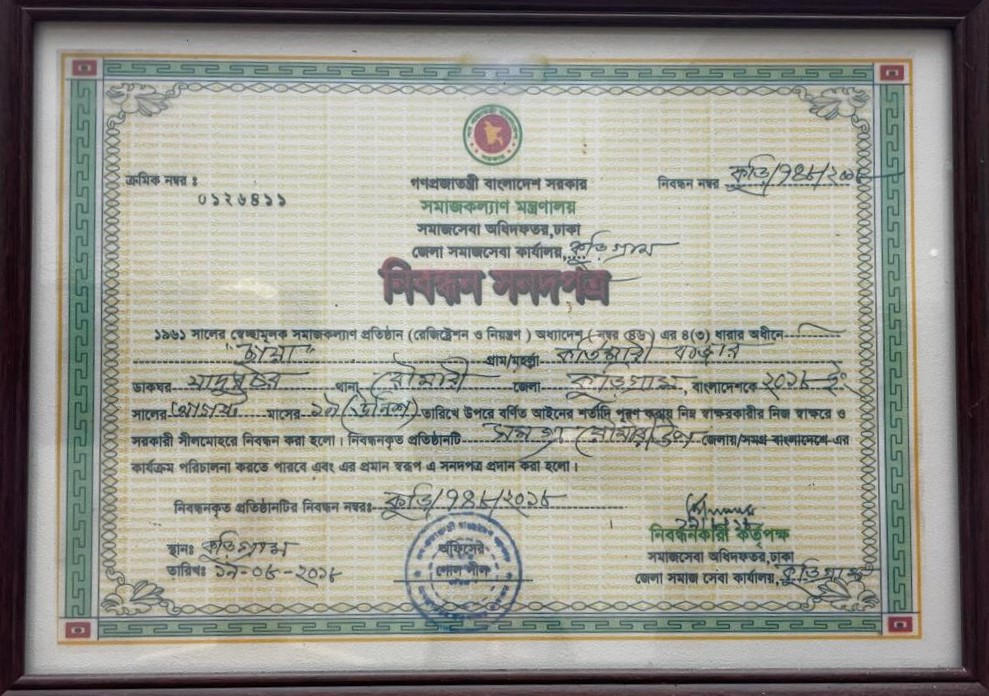 ক্রমিক নম্বর :
০১২৬৪১১
গণপ্রজাতন্ত্রী বাংলাদেশ সরকার
নিবন্ধন নম্বর কুড়ি/৭৪৮/২০১৮
সমাজকল্যাণ মন্ত্রণালয়
সমাজসেবা অধিদফতর,ঢাকা
জেলা সমাজসেবা কার্যালয়, কুড়িগ্রাম
নিবন্ধন সনদপত্র
১৯৬১ সালের স্বেচ্ছামূলক সমাজকল্যাণ প্রতিষ্ঠান (রেজিষ্ট্রেশন ও নিয়ন্ত্রণ) অধ্যাদেশ (নম্বর ৪৬) এর ৪(৩) ধারার অধীনে
"ছায়া" গ্রাম/মহল্লা কর্তিমারী বাজার
ডাকঘর যাদুরচর থানা রৌমারী জেলা কুড়িগ্রাম, বাংলাদেশকে ২০১৮ ইং
সালের আগস্ট মাসের ১৯ (উনিশ) তারিখে উপরে বর্ণিত আইনের শর্তাদি পূরণ করায় নিম্ন স্বাক্ষরকারীর নিজ স্বাক্ষরে ও
সরকারী সীলমোহরে নিবন্ধন করা হলো। নিবন্ধনকৃত প্রতিষ্ঠানটি সমগ্র জেলায়/সমগ্র বাংলাদেশে এর
কার্যক্রম পরিচালনা করতে পারবে এবং এর প্রমান স্বরূপ এ সনদপত্র প্রদান করা হলো।
নিবন্ধনকৃত প্রতিষ্ঠানটির নিবন্ধন নম্বরঃ কুড়ি/৭৪৮/২০১৮
নিবন্ধনকারী কর্তৃপক্ষ
স্থানঃ কুড়িগ্রাম
অফিসের
গোল সীল
সমাজসেবা অধিদফতর,ঢাকা
তারিখঃ ১৯-০৮-২০১৮
জেলা সমাজ সেবা কার্যালয়, কুড়িগ্রাম